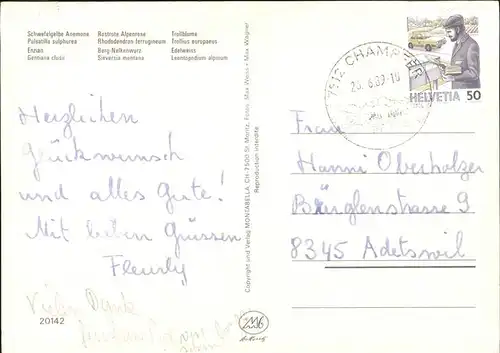 Schwefelgelbe Anemone
Pulsatilla sulphurea
Enzian
Gentiana clusii
Rostrote Alpenrose
Rhododendron ferrugineum
Berg-Nelkenwurz
Sieversia montana
Trollblume
Trollius europaeus
Edelweiss
Leontopodium alpinum
Herzlichen
Glückwunsch
und alles Gute!
Mit lieben Grüssen
Vielen Dank
20142
Copyright und Verlag MONTABELLA, CH-7500 St. Moritz, Fotos: Max Weiss + Max Wagner
Reproduction interdite
7512 CHAMPFÈR
HELVETIA 50
Frau
Hanni Oberholzer
Bürglenstrasse 9
8345 Adetswil